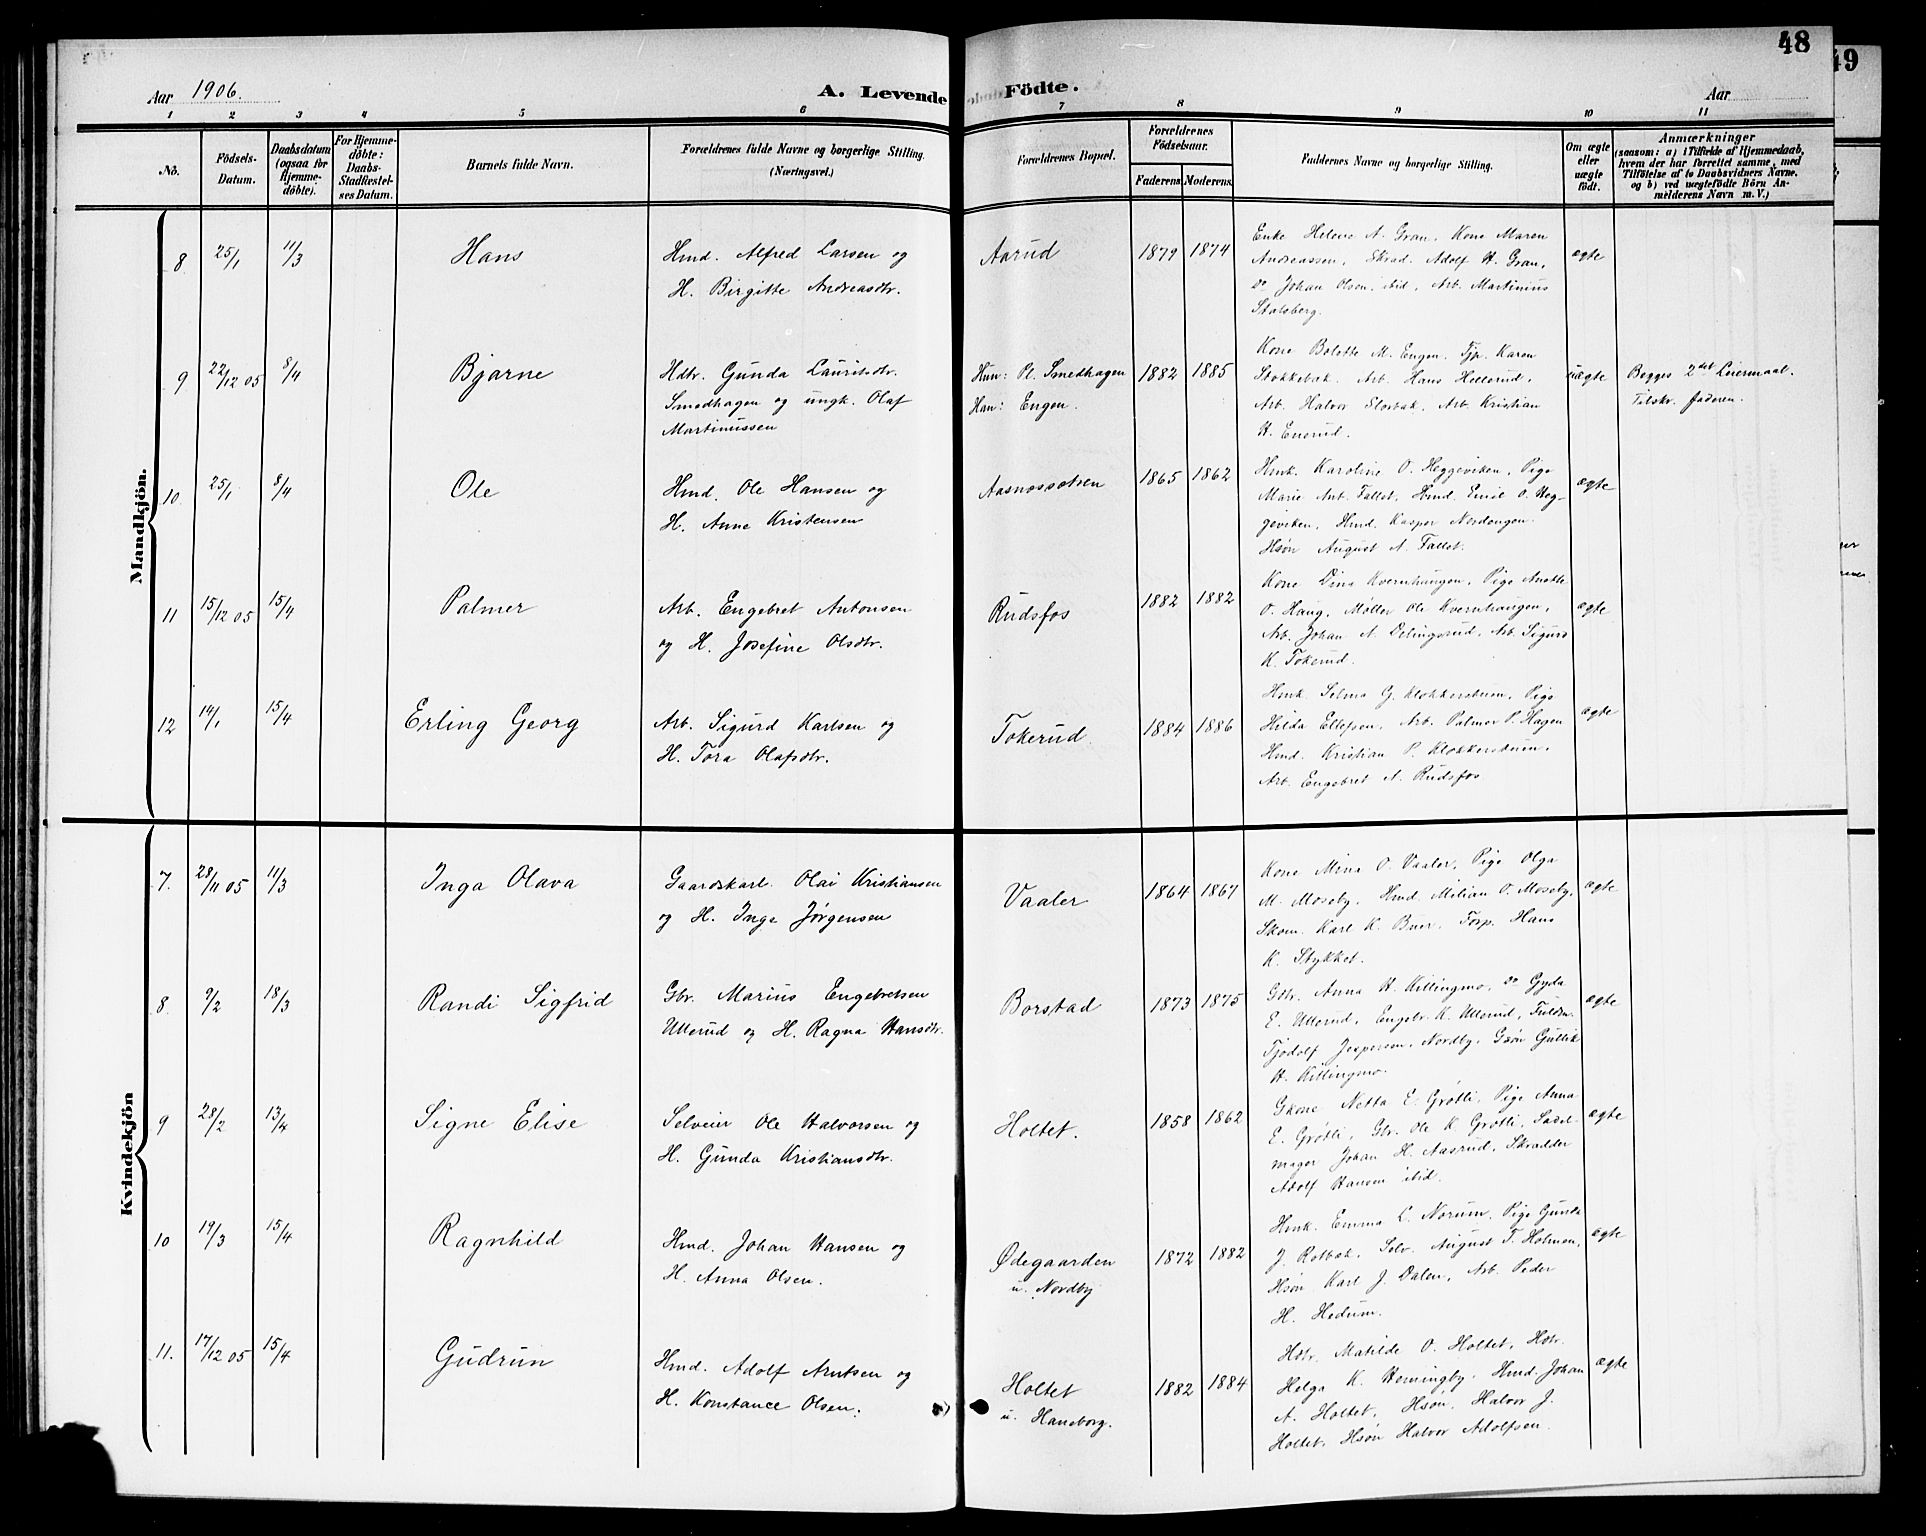 48
49
Aar 1906.
A. Levende Födte.
Aar
1 2 3 4 5 6 7 8 9 10 11
No.
Födsels-
Datum.
Daabsdatum
(ogsaa for
Hjemme-
döbte).
For Hjemme-
döbte:
Daabs-
Stadfæstel-
ses Datum.
Barnets fulde Navn.
Forældrenes fulde Navne og borgerlige Stilling.
(Næringsvei.)
Forældrenes Bopæl.
Forældrenes
Födselsaar.
Faderens
Moderens.
Faddernes Navne og borgerlige Stilling.
Om ægte
eller
uægte
födt.
Anmærkninger
(saasom: a) i Tilfælde af Hjemmedaab,
hvem der har forrettet samme, med
Tilföielse af to Daabsvidners Navne,
og b) ved uægtefödte Börn An-
melderens Navn m. V.)
Mandkjön.
8 25/1 11/3 Hans
Hmd. Alfred Larsen og
H. Birgitte Andreasdtr.
Aarud 1879 1874
Enke Helene A. Gran, Kone Maren
Andreassen, Skrad. Adolf H. Gran,
Do Johan Olsen, ibid, Arb. Martinius
Stalsberg.
ægte
9 22/12 05 8/4 Bjarne
Hdtr. Gunda Lauritsdtr.
Smedhagen og ungk. Olaf
Martinussen
Hun: Pl. Smedhagen
Han: Engen.
1882 1885
Kone Bolette M. Engen, Tjp. Karen
Stokkebæk, Arb. Hans Hellerud,
Arb. Halvor Storbæk, Arb. Kristian
H. Enerud.
uægte
Begges 2det Leiermaal.
Tilskr. faderen.
10 25/1 8/4 Ole
Hmd. Ole Hansen og
H. Anne Kristensen
Aasnessætren 1865 1862
Hmk. Karoline O. Heggeviken, Pige
Marie Ant. Fallet, Hmd. Emil O. Heg-
geviken, Hmd. Kasper Nordengen.
Hsøn August A. Fallet.
ægte
11 15/12 05 15/4 Palmer
Arb. Engebret Antonsen
og H. Josefine Olsdtr.
Rudsfos 1882 1882
Kone Dina Kvernhaugen, Pige Anette
O. Haug, Møller Ole Kvernhaugen,
Arb. Johan A. Delingsrud, Arb. Sigurd
K. Tokerud.
ægte
12 14/1 15/4 Erling Georg
Arb. Sigurd Karlsen og
H. Tora Olafsdtr.
Tokerud 1884 1886
Hmk. Selma G. Klokkerstuen, Pige
Hilda Ellefsen, Arb. Palmer P. Hagen
Hmd. Kristian P. Klokkerstuen,
Arb. Engebret A. Rudsfos
ægte
Kvindekjön
7. 28/11 05 11/3 Inga Olava
Gaardskarl. Olai Kristiansen
og H. Inga Jørgensen
Vaaler 1864 1867
Kone Mina O. Vaaler, Pige Olga
M. Moseby, Hmd. Milian O. Moseby,
Skom. Karl K. Buer, Forp. Hans
K. Stykket.
ægte
8. 9/2 18/3 Randi Sigfrid
Gbr. Marius Engebretsen
Ullerud og H. Ragna Hansdtr.
Borstad 1873 1875
Gdtr. Anna H. Killingmo, Do Gyda
E. Ullerud, Engebr. K. Ullerud, Fuldm.
Tjodolf Jespersen, Nordby, Gsøn Gullik
H. Killingmo.
ægte
9 28/2 13/4 Signe Elise
Selveier Ole Halvorsen og
H. Gunda Kristiansdtr.
Holtet. 1858 1862
Gkone Netta E. Grøtli, Pige Anna
E. Grøtli, Gbr. Ole K. Grøtli, Sadel-
mager Johan H. Aasrud, Skradder
Adolf Hansen ibid.
ægte
10 19/3 15/4 Ragnhild
Hmd. Johan Hansen og
H. Anna Olsen.
Ødegaarden
u. Nordby
1872 1882
Hmk. Emma L. Norum, Pige Gunda
J. Rolbæk, Selv. August T. Holmen,
Hsøn Karl J. Dalen, Arb. Peder
H. Hedum.
ægte
11. 17/12 05 15/4 Gudrun
Hmd. Adolf Arntsen og
H. Konstance Olsen.
Holtet
u. Haneborg.
1882 1884
Hdtr. Matilde O. Holtet, Hdtr.
Helga K. Henningby, Hmd. Johan
A. Holtet, Hsøn. Halvor J.
Holtet, Hsøn Halvor Adolfsen.
ægte